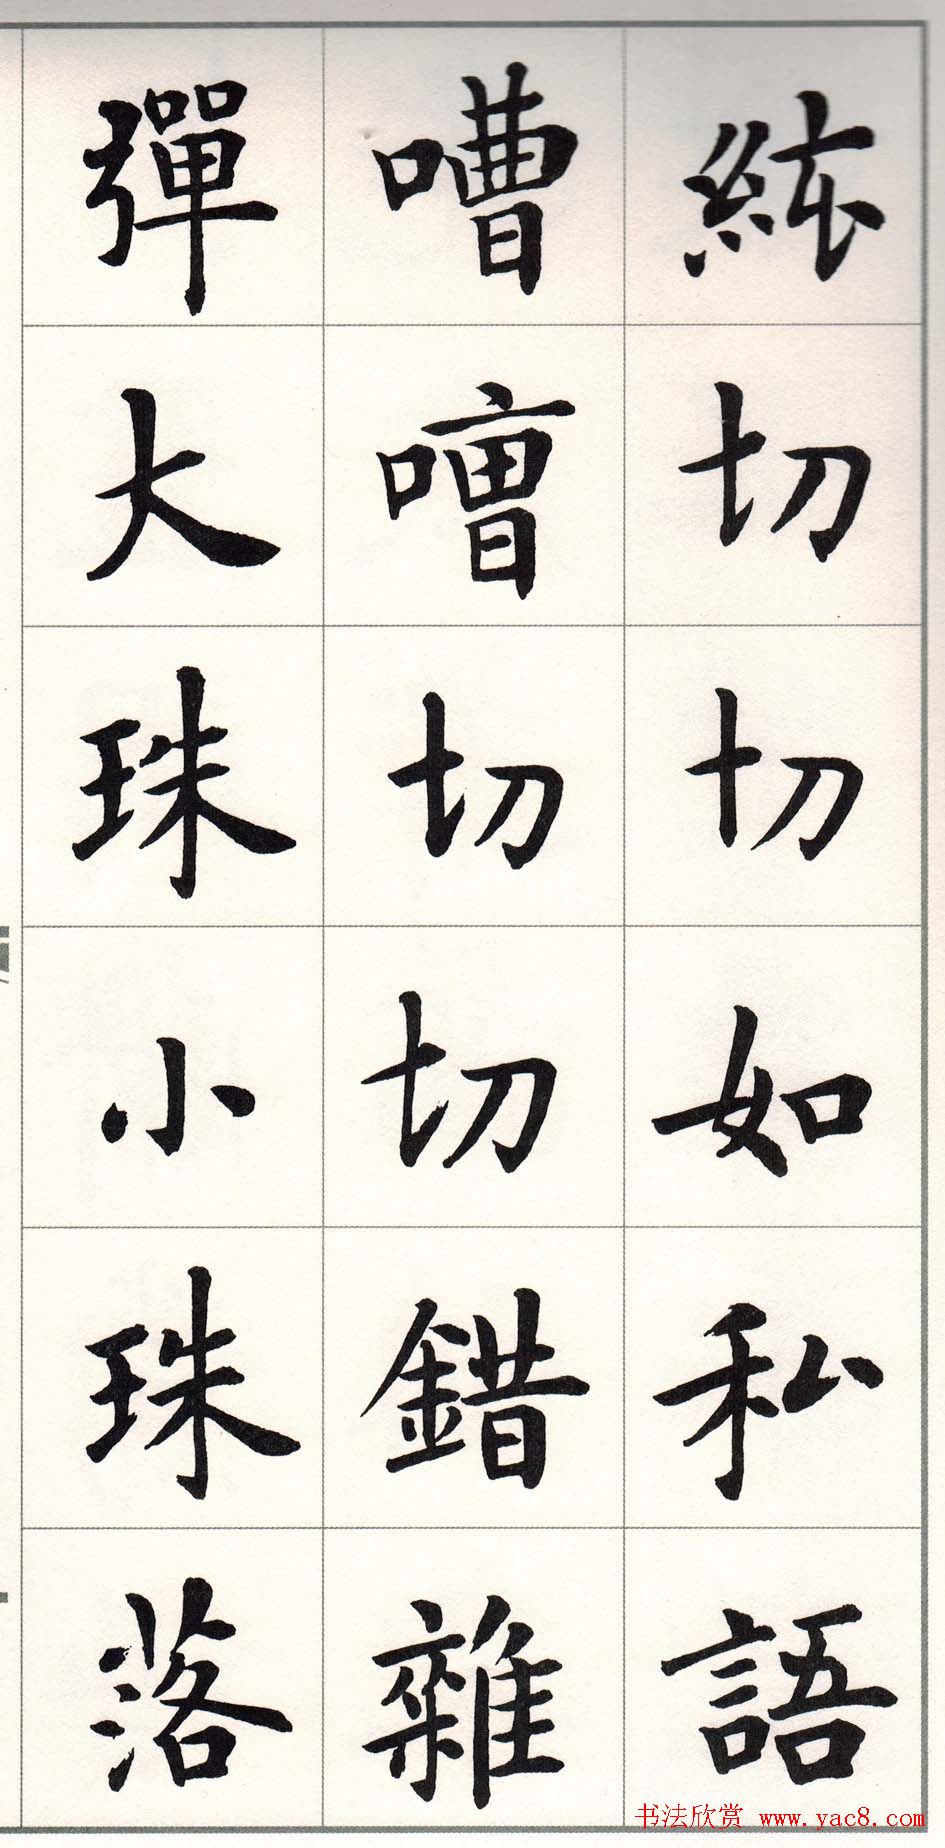 絃切切如私語
嘈嘈切切錯雜
彈大珠小珠落
书法欣赏 www.yac8.com